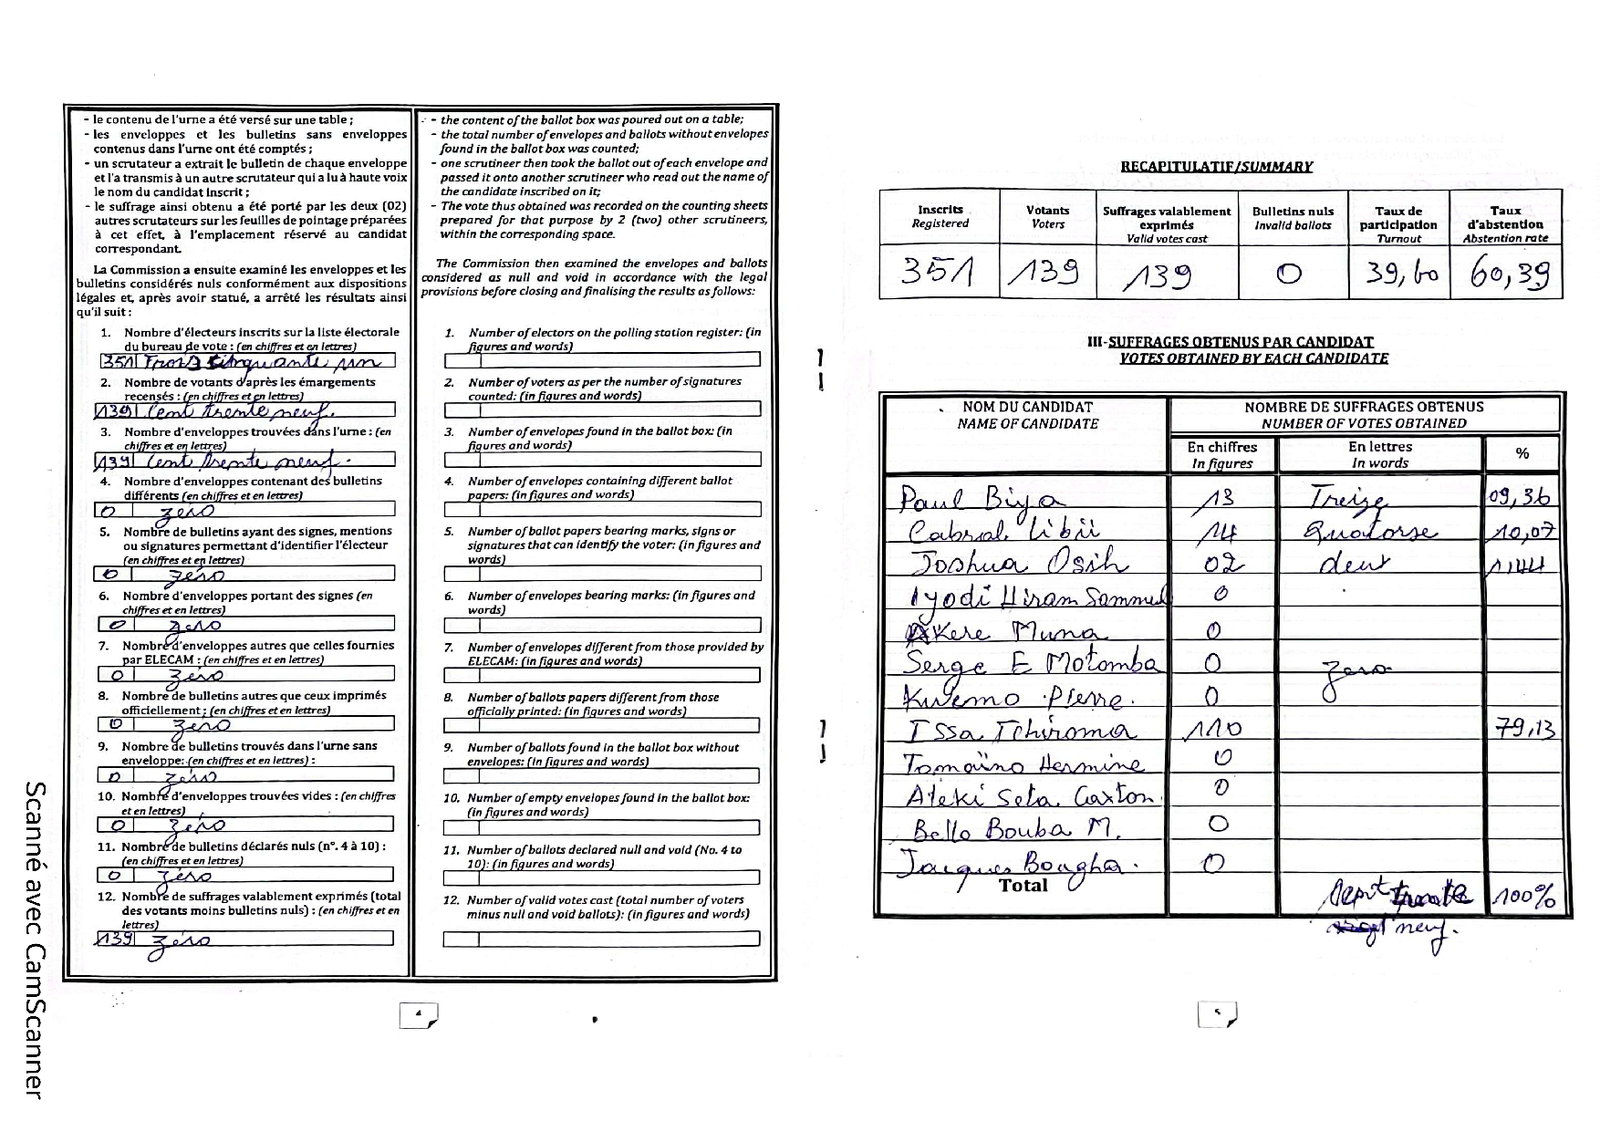 - le contenu de l'urne a été versé sur une table ;
- les enveloppes et les bulletins sans enveloppes
contenus dans l'urne ont été comptés ;
- un scrutateur a extrait le bulletin de chaque enveloppe
et l'a transmis à un autre scrutateur qui a lu à haute voix
le nom du candidat inscrit ;
- le suffrage ainsi obtenu a été porté par les deux (02)
autres scrutateurs sur les feuilles de pointage préparées
à cet effet, à l'emplacement réservé au candidat
correspondant.
La Commission a ensuite examiné les enveloppes et les
bulletins considérés nuls conformément aux dispositions
légales et, après avoir statué, a arrêté les résultats ainsi
qu'il suit :
1. Nombre d'électeurs inscrits sur la liste électorale
du bureau de vote : (en chiffres et en lettres)
351 Trois Cinquante un
2. Nombre de votants d'après les émargements
recensés : (en chiffres et en lettres)
139 Cent trente neuf.
3. Nombre d'enveloppes trouvées dans l'urne : (en
chiffres et en lettres)
139 Cent trente neuf.
4. Nombre d'enveloppes contenant des bulletins
différents (en chiffres et en lettres)
0 zéro
5. Nombre de bulletins ayant des signes, mentions
ou signatures permettant d'identifier l'électeur
(en chiffres et en lettres)
0 zéro
6. Nombre d'enveloppes portant des signes (en
chiffres et en lettres)
0 zéro
7. Nombre d'enveloppes autres que celles fournies
par ELECAM : (en chiffres et en lettres)
0 zéro
8. Nombre de bulletins autres que ceux imprimés
officiellement : (en chiffres et en lettres)
0 zéro
9. Nombre de bulletins trouvés dans l'urne sans
enveloppe: (en chiffres et en lettres) :
0 zéro
10. Nombre d'enveloppes trouvées vides : (en chiffres
et en lettres)
0 zéro
11. Nombre de bulletins déclarés nuls (n°. 4 à 10) :
(en chiffres et en lettres)
0 zéro
12. Nombre de suffrages valablement exprimés (total
des votants moins bulletins nuls) : (en chiffres et en
lettres)
139 zéro
- the content of the ballot box was poured out on a table;
- the total number of envelopes and ballots without envelopes
found in the ballot box was counted;
- one scrutineer then took the ballot out of each envelope and
passed it onto another scrutineer who read out the name of
the candidate inscribed on it;
- The vote thus obtained was recorded on the counting sheets
prepared for that purpose by 2 (two) other scrutineers,
within the corresponding space.
The Commission then examined the envelopes and ballots
considered as null and void in accordance with the legal
provisions before closing and finalising the results as follows:
1. Number of electors on the polling station register: (in
figures and words)
2. Number of voters as per the number of signatures
counted: (in figures and words)
3. Number of envelopes found in the ballot box: (in
figures and words)
4. Number of envelopes containing different ballot
papers: (in figures and words)
5. Number of ballot papers bearing marks, signs or
signatures that can identify the voter: (in figures and
words)
6. Number of envelopes bearing marks: (in figures and
words)
7. Number of envelopes different from those provided by
ELECAM: (in figures and words)
8. Number of ballots papers different from those
officially printed: (in figures and words)
9. Number of ballots found in the ballot box without
envelopes: (in figures and words)
10. Number of empty envelopes found in the ballot box:
(in figures and words)
11. Number of ballots declared null and void (No. 4 to
10): (in figures and words)
12. Number of valid votes cast (total number of voters
minus null and void ballots): (in figures and words)
4
Scanné avec CamScanner
RECAPITULATIF/SUMMARY
Inscrits Votants Suffrages valablement Bulletins nuls Taux de Taux
Registered Voters exprimés Invalid ballots participation d'abstention
Valid votes cast Turnout Abstention rate
351 139 139 0 39,60 60,39
III-SUFFRAGES OBTENUS PAR CANDIDAT
VOTES OBTAINED BY EACH CANDIDATE
NOM DU CANDIDAT NOMBRE DE SUFFRAGES OBTENUS
NAME OF CANDIDATE NUMBER OF VOTES OBTAINED
En chiffres En lettres %
In figures In words
Paul Biya 13 Treize 09,36
Cabral Libii 14 Quatorse 10,07
Joshua Osih 02 deux 1,44
Iyodi Hiram Sammuel 0
Akere Muna 0
Serge E Motomba 0 zero
Kwemo Pierre. 0
Issa Tchiroma 110 79,13
Tomaïno Hermine 0
Ateki Seta Caxton. 0
Bello Bouba M. 0
Jacques Bougha. 0
Total 100%
neuf.
5